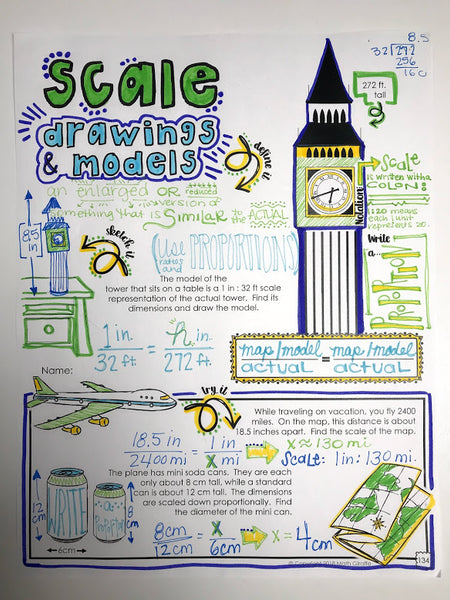 scale
drawings
& models
define it
an enlarged OR reduced
version of
something that is SIMILAR to the ACTUAL.
8.5
32 272
256
160
272 ft.
tall
Scale
is written with a
COLON:
Notation
1:20 means
each 1 unit
represents 20.
Write
a...
PROPORTION
8.5
in
sketch it
(Use rates and PROPORTIONS)
The model of the
tower that sits on a table is a 1 in : 32 ft scale
representation of the actual tower. Find its
dimensions and draw the model.
1 in. = h in.
32 ft. 272 ft.
map/model = map/model
actual actual
Name:
try it
While traveling on vacation, you fly 2400
miles. On the map, this distance is about
18.5 inches apart. Find the scale of the map.
18.5 in = 1 in x ≈ 130 mi
2400 mi x mi Scale: 1in: 130 mi.
The plane has mini soda cans. They are each
only about 8 cm tall, while a standard
can is about 12 cm tall. The dimensions
are scaled down proportionally. Find
the diameter of the mini can.
12 cm
WRITE
a
PROPORTION
8 cm
6cm
8cm = x x = 4cm
12cm 6cm
© Copyright 2018 Math Giraffe
134